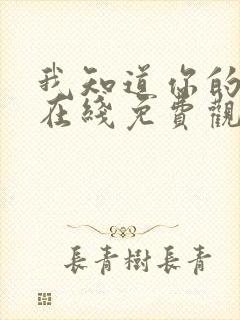 我知道你的
在綫免費觀
長青樹長青